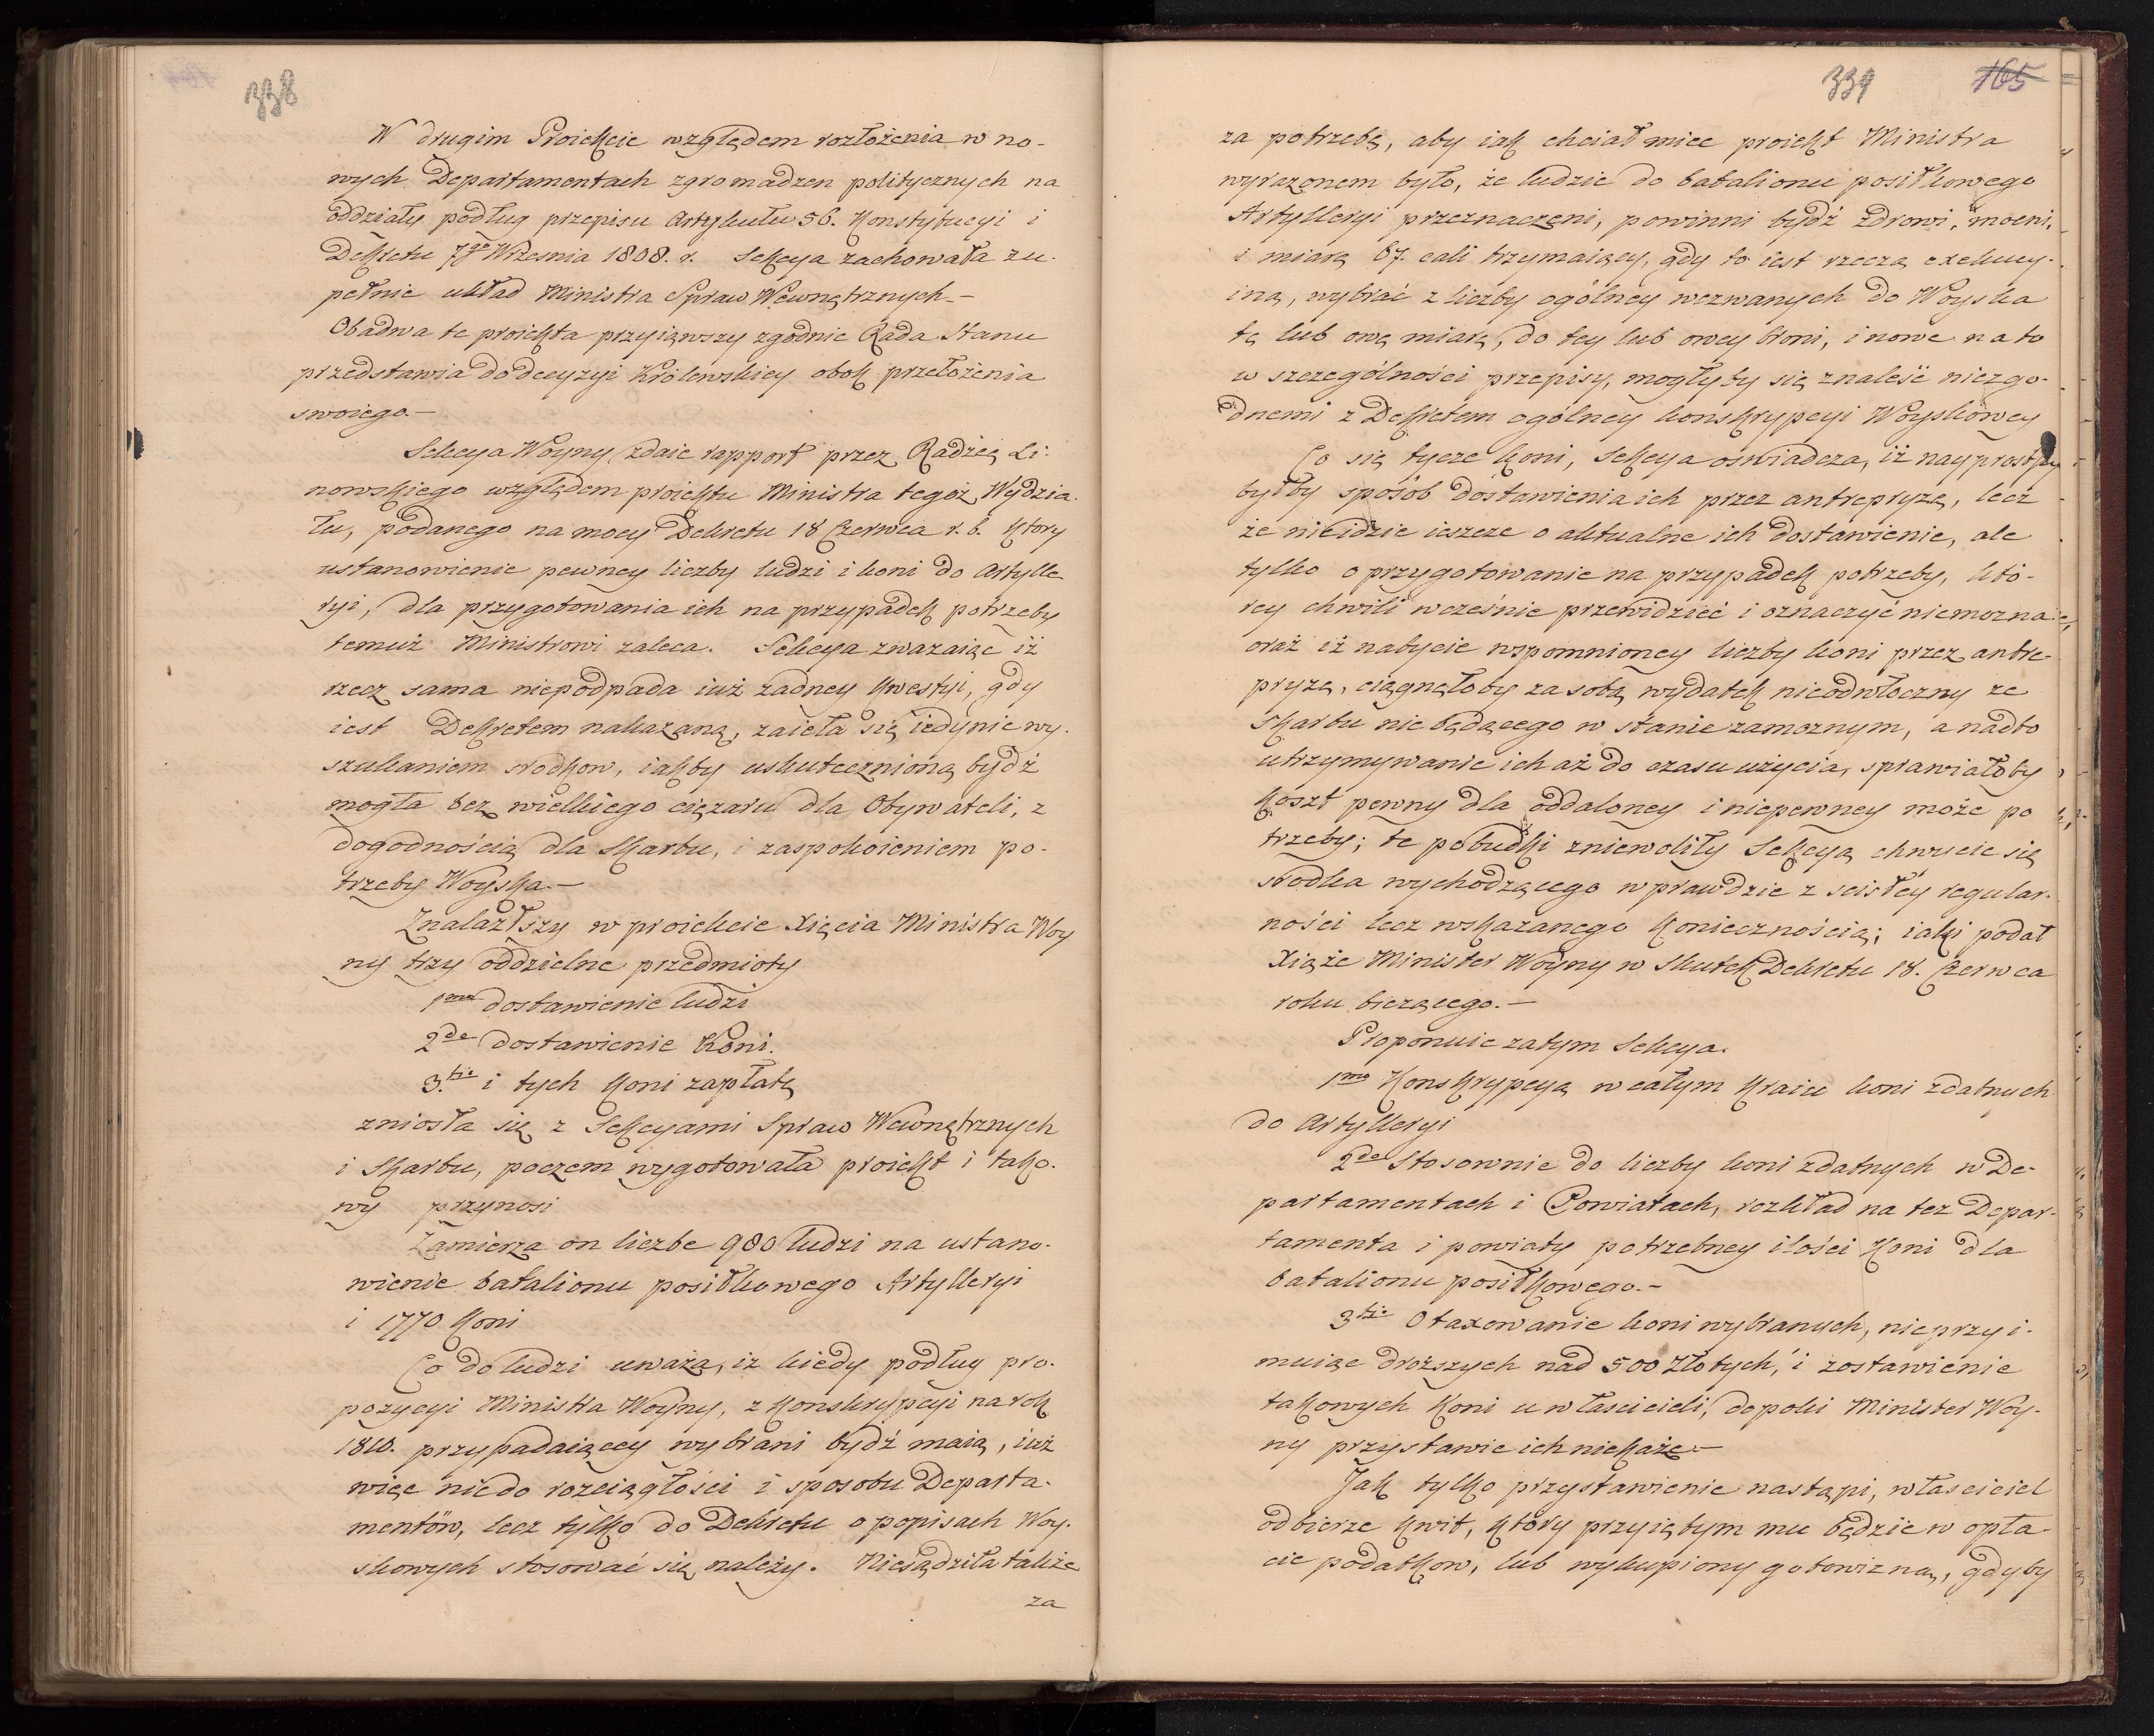 338
W drugim Proiekcie względem rozłożenia w no-
wych Departamentach zgromadzen politycznych na
oddziały podług przepisu Artykułu 56. Konstytucyi i
Dekretu 7go Wrzesnia 1808. r. Sekcya zachowała zu-
pełnie układ Ministra Spraw Wewnętrznych.-
Obadwa te proiekta przyiąwszy zgodnie Rada Stanu
przedstawia do decyzyi Królewskiey obok przełożenia
swoiego.-
Sekcya Woyny, zdaie rapport przez Radzcę Li-
nowskiego względem proiektu Ministra tegoż Wydzia-
łu, podanego na mocy Dekretu 18 Czerwca r. b. ktory
ustanowienie pewney liczby ludzi i koni do Artylle-
ryi, dla przygotowania ich na przypadek potrzeby
temuż Ministrowi zaleca. Sekcya zwazaiąc iż
rzecz sama niepodpada iuż żadney kwestyi, gdy
iest Dekretem nakazaną, zaieła się iedynie wy-
szukaniem srodkow, iakby uskutecznioną bydź
mogła bez wielkiego ciężaru dla Obywateli, z
dogodnością dla Skarbu, i zaspokoieniem po-
trzeby Woyska.-
Znalazłszy w proiekcie Xięcia Ministra Woy
ny trzy oddzielne przedmioty
1mo dostawienie ludzi
2do dostawienie Koni.
3.tio i tych koni zapłatę
zniosła się z Sekcyami Spraw Wewnętrznych
i Skarbu, poczem wygotowała proiekt i tako-
wy przynosi
Zamierza on liczbe 980 ludzi na ustano-
wienie batalionu posiłkowego Artylleryi
i 1770 koni
Co do ludzi uważa, iz kiedy podług pro-
pozycyi Ministra Woyny, z konskrypcyi na rok
1810. przypadaiący wybrani bydź maią, iuż
więc nie do rozciągłości i sposobu Departa-
mentów, lecz tylko do Dekretu o popisach Woy-
skowych stosować się należy. Niesądziła także
za
339
165
za potrzebę, aby iak chciał miec proiekt Ministra
wyrazonem było, że ludzie do batalionu posiłkowego
Artylleryi przeznaczeni, powinni bydź zdrowi, mocni,
i miarę 67. cali trzymaiący, gdy to iest rzeczą exekucy-
iną, wybrać z liczby ogólney wezwanych do Woyska
tę lub ową miarę, do tey lub owey broni, i nowe na to
w szczególności przepisy, mogłyby się znaleść niezgo-
dnemi z Dekretem ogólney konskrypcyi Woyskowey
Co się tycze koni, Sekcya oswiadcza, iż nayprostszy
byłby sposób dostawienia ich przez antrepryzę, lecz
że nieidzie ieszcze o aktualne ich dostawienie, ale
tylko o przygotowanie na przypadek potrzeby, któ-
rey chwili wcześnie przewidzieć i oznaczyć niemozna
oraż iż nabycie wspomnioney liczby koni przez antre-
pryzę, ciągnęłoby za sobą wydatek nieodwłoczny ze
skarbu nie będącego w stanie zamoznym, a nadto
utrzymywanie ich aż do czasu użycia, sprawiałoby
koszt pewny dla oddaloney i niepewney może po
trzeby; te pobudki zniewoliły Sekcyą chwycic się
srodka wychodzącego wprawdzie z scisłey regular-
ności lecz wskazanego koniecznością; iaki podał
Xiąże Minister Woyny w skutek Dekretu 18. Czerwca
roku bieżącego.-
Proponuie zatym Sekcya.
1mo Konskrypcyą w całym kraiu koni zdatnych
do Artylleryi
2do Stosownie do liczby koni zdatnych w De-
partamentach i Powiatach, rozkład na tez Depar-
tamenta i powiaty potrzebney ilości Koni dla
batalionu posiłkowego.-
3tio Otaxowanie koni wybranych, nieprzyi-
muiąc droższych nad 500 Złotych, i zostawienie
takowych Koni u własicieli, dopoki Minister Woy-
ny przystawic ich niekaże.-
Jak tylko przystawienie nastąpi, własciciel
odbierze kwit, który przyiętym mu będzie w opła-
cie podatkow, lub wykupiony gotowizną, gdyby